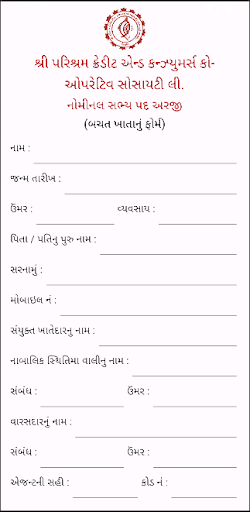 શ્રી પરિશ્રમ ક્રેડીટ એન્ડ કન્ઝ્યુમર્સ કો-
ઓપરેટિવ સોસાયટી લી.
નોમીનલ સભ્ય પદ અરજી
(બચત ખાતાનું ફોર્મ)
નામ :
જન્મ તારીખ :
ઉંમર : વ્યવસાય :
પિતા / પતિનુ પુરુ નામ :
સરનામું :
મોબાઇલ નં :
સંયુક્ત ખાતેદારનુ નામ :
નાબાલિક સ્થિતિમા વાલીનુ નામ :
સંબંધ : ઉંમર :
વારસદારનું નામ :
સંબંધ : ઉંમર :
એજન્ટની સહી : કોડ નં :